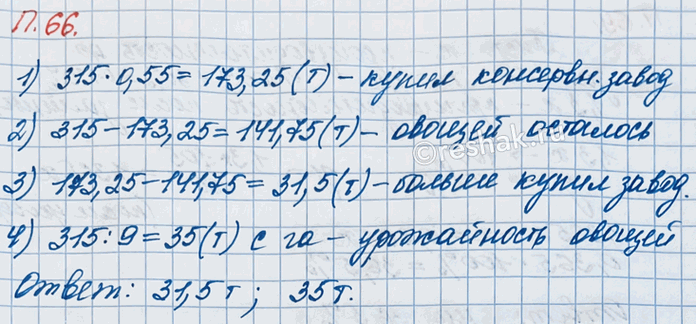 П.66.
1) 315·0,55=173,25(т)–купил консервн.завод
2) 315–173,25=141,75(т)– овощей осталось
3) 173,25–141,75=31,5(т)–больше купил завод.
4) 315:9=35(т) с га – урожайность овощей
Ответ: 31,5т; 35т.
©reshak.ru